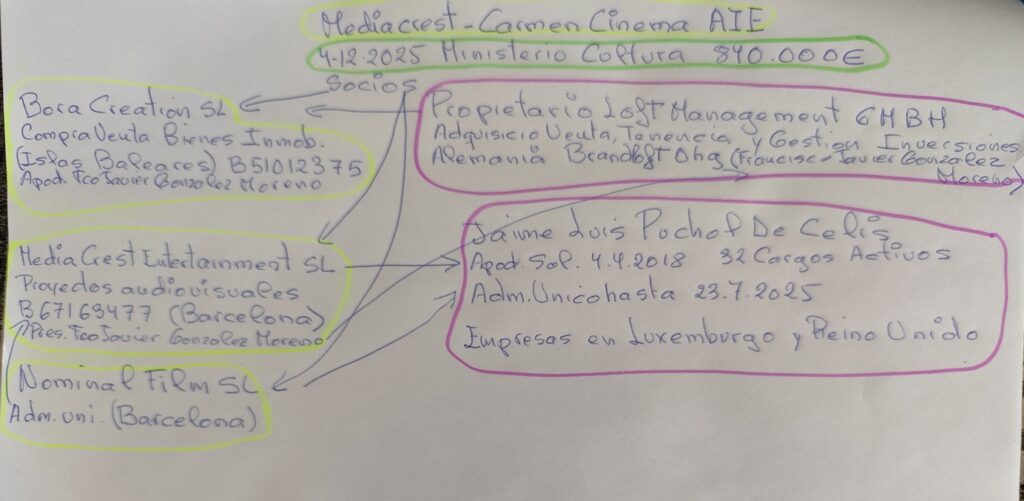 Mediacrest-Carmen Cinema AIE
4-12-2025 Ministerio Coltura 840.000€
Socios
Bora Creation SL
CompraVenta Bienes Inmob.
(Islas Baleares) B51012375
Apod. Fco Javier Gonzalez Moreno
Propietario Loft Management GMBH
Adquisicio Venta, Tenencia y Gestion Inversiones
Alemania Brandloft Ohg (Francisco Javier Gonzalez
Moreno)
MediaCrest Entertainment SL
Proyectos audiovisuales
B67163477 (Barcelona)
Pres. Fco Javier Gonzalez Moreno
Jaime Luis Pochof De Celis
Apod. Sol. 4.4.2018 32 Cargos Activos
Adm. Unico hasta 23.7.2025
Empresas en Luxemburgo y Reino Unido
Nominal Film SL
Adm. uni. (Barcelona)